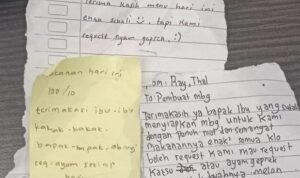 Terima kasih menu hari ini
enak sekali tapi kami
request ayam geprek :)
makanan hari ini
100/10
terimakasi ibu-ibu
kakak-kakak
bapak-bapak, abang
req: ayam setiap
hari
Ray, Thal
To Pembuat mbg
Terimakasih ya bapak ibu yang sudah
menyiapkan mbg untuk kami
dengan penuh niat dan semangat
makanannya enak semua klo
boleh request kami mau request
Katsu atau ayam geprek
buahnya melon